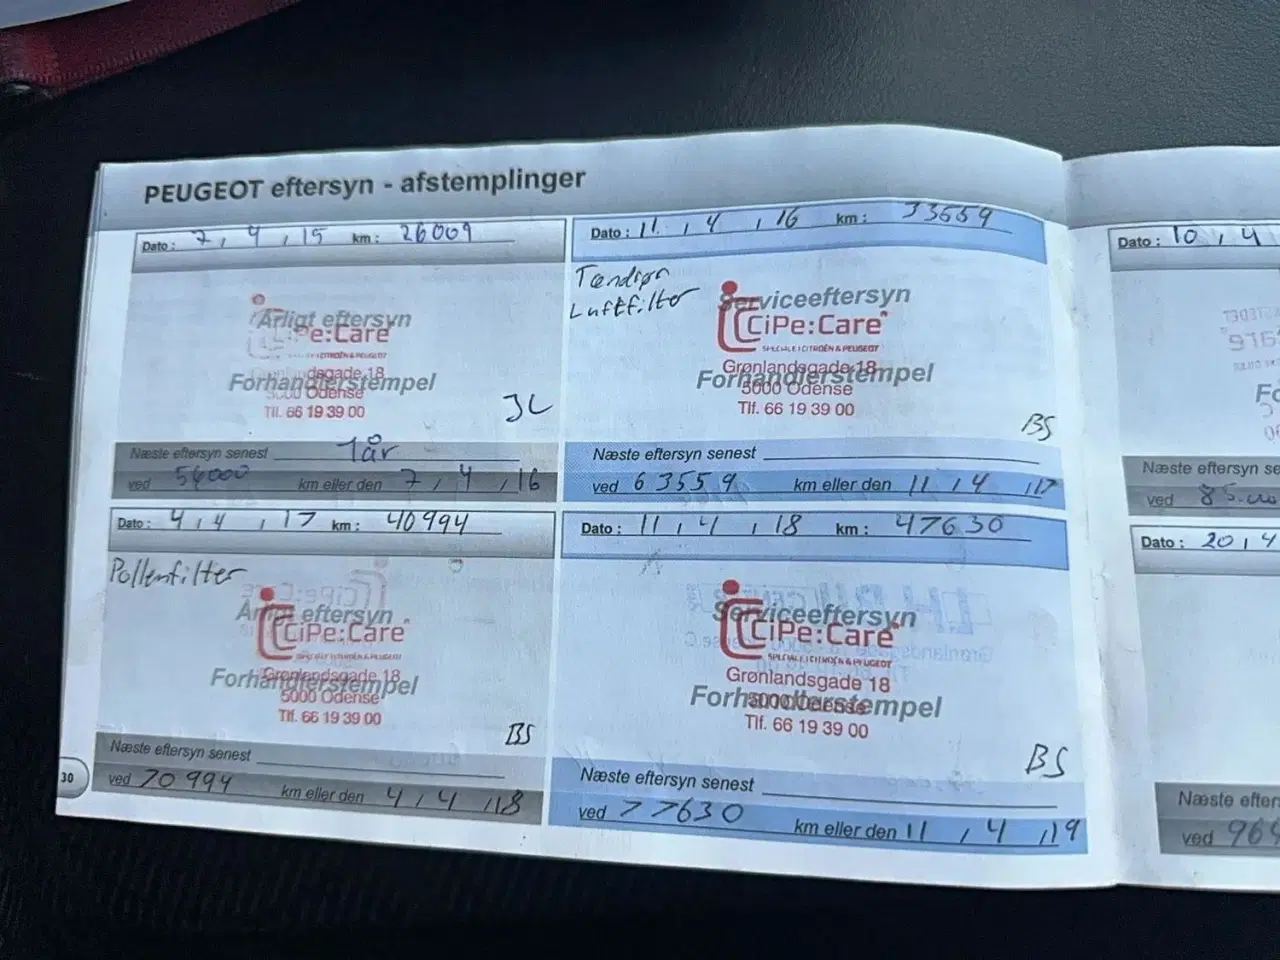 PEUGEOT eftersyn - afstemplinger
Dato: 7, 4, 15 km: 26009
Årligt eftersyn
iPe:Care
SPECIALE I CITROËN & PEUGEOT
Forhandlerstempel
Grønlandsgade 18
5000 Odense
Tlf. 66 19 39 00
JL
Næste eftersyn senest 1 år
ved 56000 km eller den 7, 4, 16
Dato: 11, 4, 16 km: 33559
Tændrør
Luftfilter
Serviceeftersyn
CiPe:Care
SPECIALE I CITROËN & PEUGEOT
Grønlandsgade 18
Forhandlerstempel
5000 Odense
Tlf. 66 19 39 00
BS
Næste eftersyn senest
ved 63559 km eller den 11, 4, 17
Dato: 4, 4, 17 km: 40994
Pollenfilter
Årligt eftersyn
CiPe:Care
SPECIALE I CITROËN & PEUGEOT
Grønlandsgade 18
Forhandlerstempel
5000 Odense
Tlf. 66 19 39 00
BS
Næste eftersyn senest
ved 70994 km eller den 4, 4, 18
30
Dato: 11, 4, 18 km: 47630
Serviceeftersyn
CiPe:Care
SPECIALE I CITROËN & PEUGEOT
Grønlandsgade 18
Forhandlerstempel
5000 Odense
Tlf. 66 19 39 00
BS
Næste eftersyn senest
ved 77630 km eller den 11, 4, 19
Dato: 10, 4
Fo
Næste eftersyn se
ved
Dato: 20, 4
Næste efter
ved 969